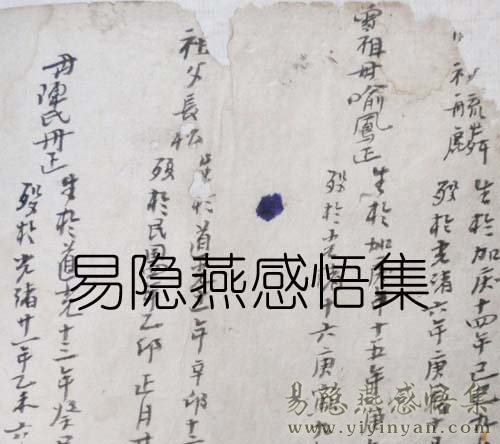 祖毓麟
生於加庆十四年己巳九
殁於光绪六年庚
祖母喻鳳正
生於加庆十五年庚
殁於光十六庚
祖父長松
生於道年辛卯十二
殁於民国乙卯正月廿
母陳氏丹正
生於道光十三年癸巳
殁於光緒廿一年乙未六
易隐燕感悟集
易隐燕感悟集
www.yiyinyan.com